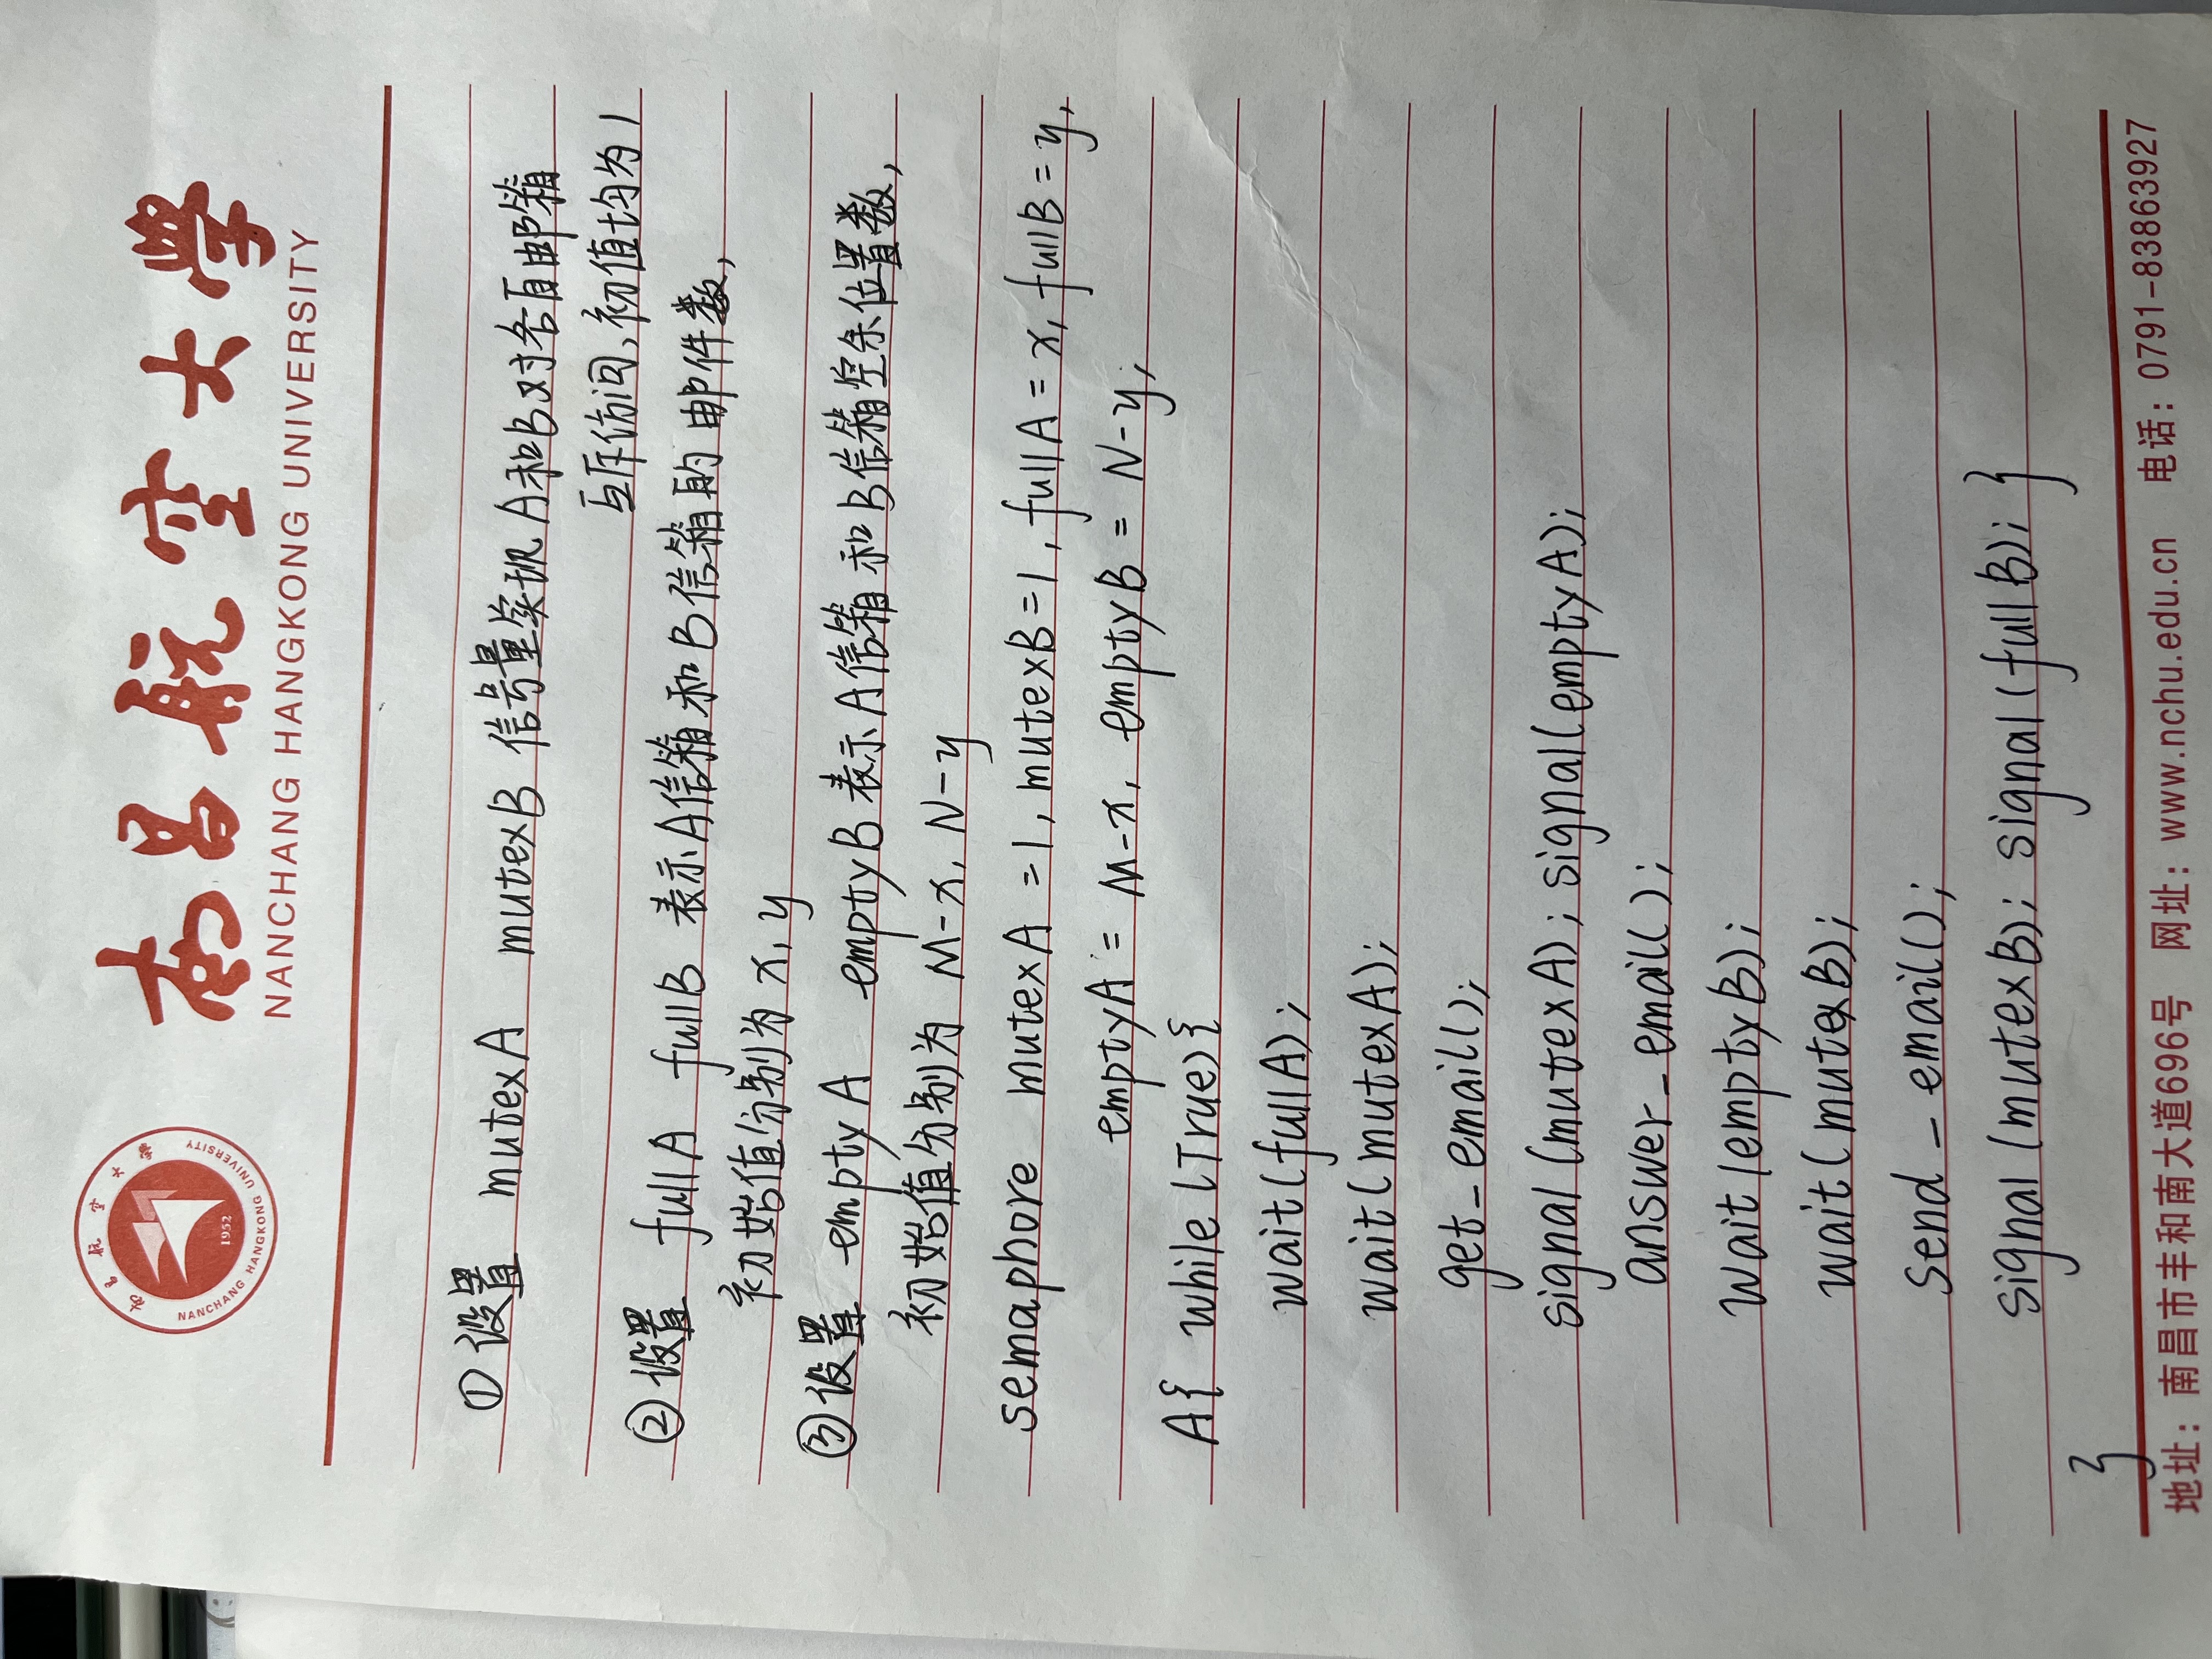 南昌航空大学
NANCHANG HANGKONG UNIVERSITY
南昌航空大学
1952
NANCHANG HANGKONG UNIVERSITY
①设置 mutexA mutexB 信号量实现A和B对各自邮箱
互斥访问,初值均为1
②设置 fullA fullB 表示A信箱和B信箱的邮件数,
初始值分别为 x,y
③设置 emptyA emptyB 表示A信箱和B信箱空余位置数,
初始值分别为 M-x, N-y
semaphore mutexA=1, mutexB=1, fullA=x, fullB=y,
emptyA=M-x, emptyB=N-y;
A{ while(True){
wait(fullA);
wait(mutexA);
get_email();
signal(mutexA); signal(emptyA);
answer_email();
wait(emptyB);
wait(mutexB);
send_email();
signal(mutexB); signal(fullB); }
}
地址: 南昌市丰和南大道696号 网址: www.nchu.edu.cn 电话: 0791-83863927